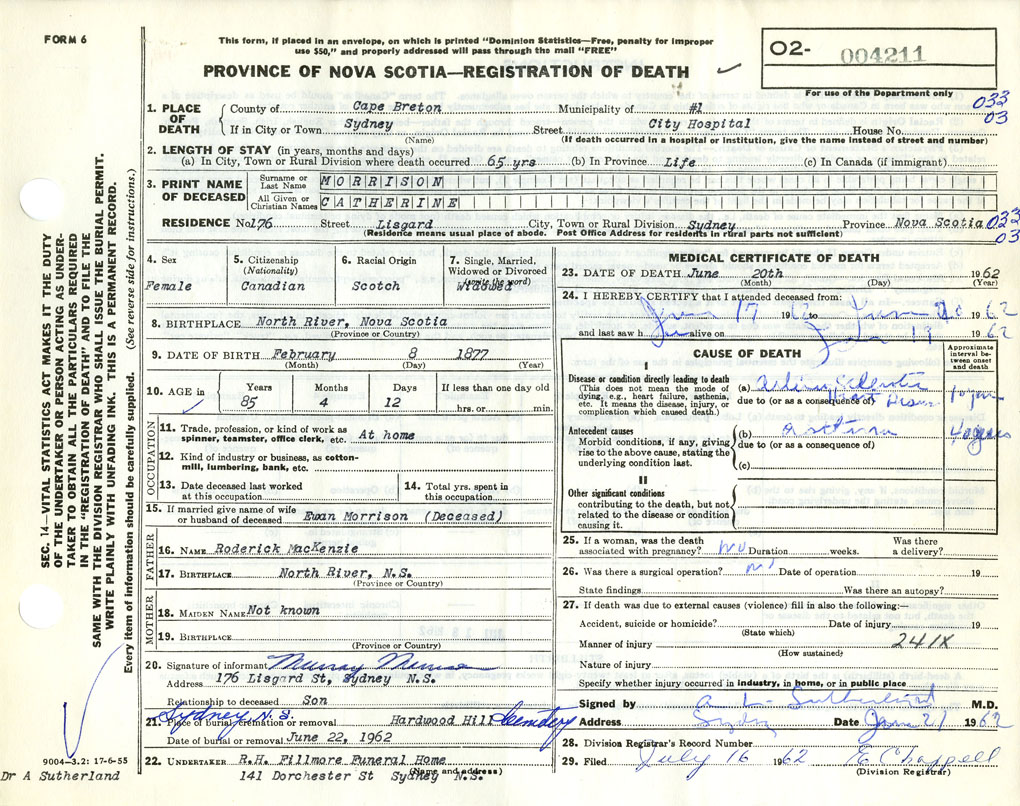 FORM 6
This form, if placed in an envelope, on which is printed "Dominion Statistics—Free, penalty for improper
use $50," and properly addressed will pass through the mail "FREE"
PROVINCE OF NOVA SCOTIA—REGISTRATION OF DEATH
02- 004211
For use of the Department only
033
03
1. PLACE OF DEATH
County of Cape Breton Municipality of #1
If in City or Town Sydney Street City Hospital House No.
(Name) (If death occurred in a hospital or Institution, give the name instead of street and number)
2. LENGTH OF STAY (in years, months and days)
(a) In City, Town or Rural Division where death occurred 65 yrs (b) In Province Life (c) In Canada (if immigrant)
3. PRINT NAME OF DECEASED
Surname or Last Name MORRISON
All Given or Christian Names CATHERINE
RESIDENCE No. 176 Street Lisgard City, Town or Rural Division Sydney Province Nova Scotia 033
03
(Residence means usual place of abode. Post Office Address for residents in rural parts not sufficient)
4. Sex
Female
5. Citizenship
(Nationality)
Canadian
6. Racial Origin
Scotch
7. Single, Married, Widowed or Divorced
(write the word)
Widowed
8. BIRTHPLACE North River, Nova Scotia
(Province or Country)
9. DATE OF BIRTH February 8 1877
(Month) (Day) (Year)
10. AGE in
Years Months Days If less than one day old
85 4 12 hrs. or min.
OCCUPATION
11. Trade, profession, or kind of work as
spinner, teamster, office clerk, etc. At home
12. Kind of industry or business, as cotton-
mill, lumbering, bank, etc.
13. Date deceased last worked
at this occupation
14. Total yrs. spent in
this occupation
15. If married give name of wife
or husband of deceased Ewan Morrison (Deceased)
FATHER
16. NAME Roderick MacKenzie
17. BIRTHPLACE North River, N.S.
(Province or Country)
MOTHER
18. MAIDEN NAME Not known
19. BIRTHPLACE
(Province or Country)
20. Signature of informant Murray Morrison
Address 176 Lisgard St, Sydney N.S.
Relationship to deceased Son
Sydney N.S.
21. Place of burial, cremation or removal Hardwood Hill Cemetery
Date of burial or removal June 22, 1962
22. UNDERTAKER R.H. Fillmore Funeral Home
141 Dorchester St Sydney N.S.
(Name and address)
MEDICAL CERTIFICATE OF DEATH
23. DATE OF DEATH June 20th 1962
(Month) (Day) (Year)
24. I HEREBY CERTIFY that I attended deceased from:
June 17 1962 to June 20 1962
and last saw h alive on 19 1962
CAUSE OF DEATH
Approximate interval between onset and death
I
Disease or condition directly leading to death
(This does not mean the mode of
dying, e.g., heart failure, asthenia,
etc. It means the disease, injury, or
complication which caused death.)
(a)
due to (or as a consequence of) Heart Disease
10 years
Antecedent causes
Morbid conditions, if any, giving
rise to the above cause, stating the
underlying condition last.
(b) asthma 40 years
due to (or as a consequence of)
(c)
II
Other significant conditions
contributing to the death, but not
related to the disease or condition
causing it.
25. If a woman, was the death
associated with pregnancy? no Duration weeks. Was there
a delivery?
26. Was there a surgical operation? no Date of operation 19
State findings Was there an autopsy?
27. If death was due to external causes (violence) fill in also the following:—
Accident, suicide or homicide? Date of injury 19
(State which)
Manner of injury 241X
(How sustained)
Nature of injury
Specify whether injury occurred in industry, in home, or in public place
Signed by A. L. Sutherland M.D.
Address Sydney Date June 21 1962
28. Division Registrar's Record Number
29. Filed July 16 1962 E Chappell
(Division Registrar)
SEC. 14—VITAL STATISTICS ACT MAKES IT THE DUTY
OF THE UNDERTAKER OR PERSON ACTING AS UNDER-
TAKER TO OBTAIN ALL THE PARTICULARS REQUIRED
IN THE "REGISTRATION OF DEATH" AND TO FILE THE
SAME WITH THE DIVISION REGISTRAR WHO SHALL ISSUE THE BURIAL PERMIT.
WRITE PLAINLY WITH UNFADING INK. THIS IS A PERMANENT RECORD.
Every item of information should be carefully supplied. (See reverse side for instructions.)
9004-3.2: 17-6-55
Dr A Sutherland